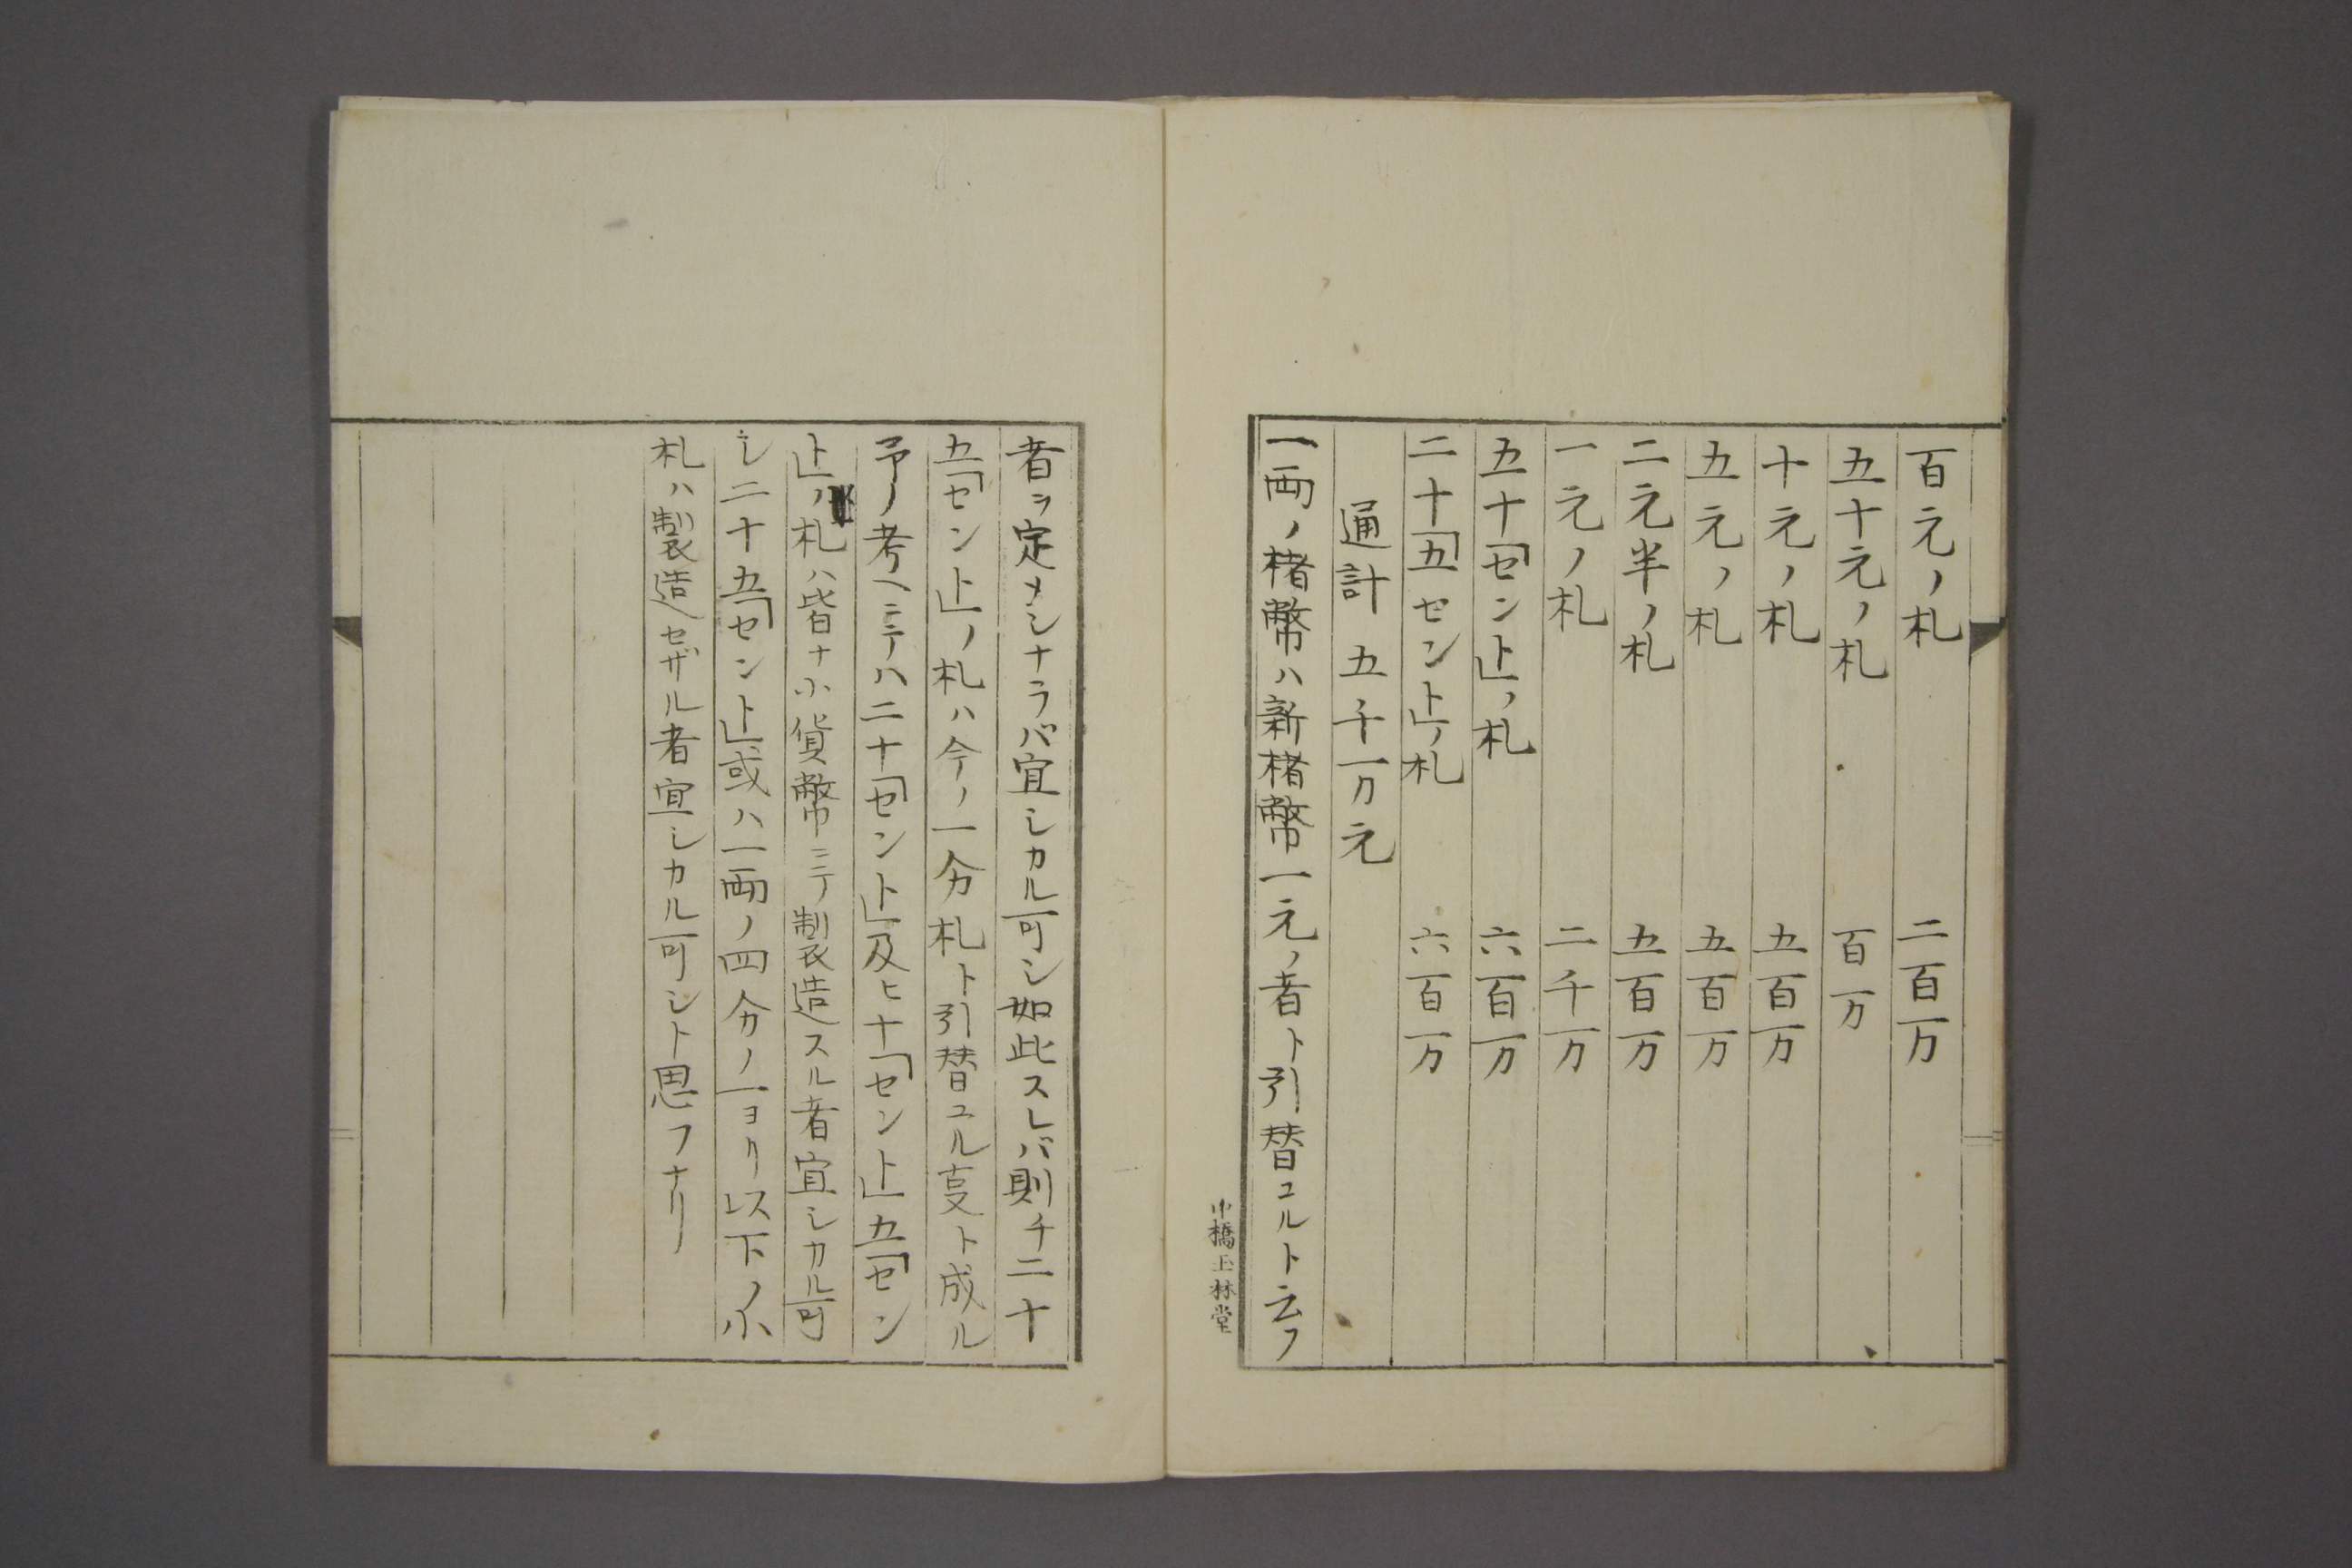 百元ノ札 二百万
五十元ノ札 百万
十元ノ札 五百万
五元ノ札 五百万
二元半ノ札 五百万
一元ノ札 二千万
五十「セント」ノ札 六百万
二十「五セント」ノ札 六百万
通計 五千万元
一両ノ楮幣ハ新楮幣一元ノ者ト引替ユルト云フ
中橋玉林堂
者ヲ定メシナラバ宜シカル可シ如此スレバ則チ二十
五「セント」ノ札ハ今ノ一分札ト引替ユル叓ト成ル
予ノ考ヘニテハ二十「セント」及ヒ十「セント」五「セン
ト」ノ札ハ皆ナ小貨幣ニテ製造スル者宜シカル可
シ二十五「セント」或ハ一両ノ四分ノ一ヨリ以下ノ小
札ハ製造セザル者宜シカル可シト思フナリ